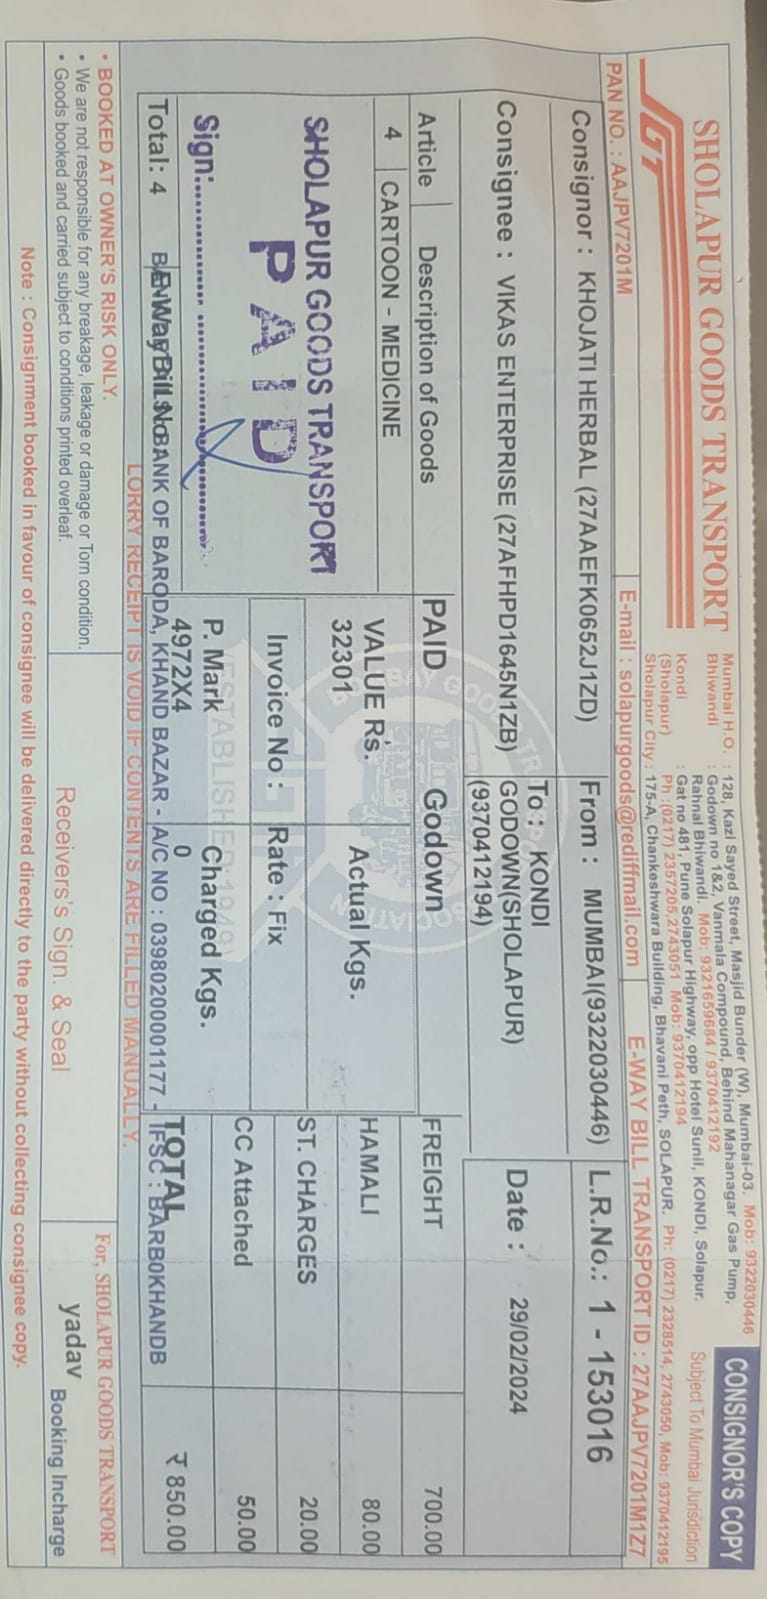 CONSIGNOR'S COPY
Subject To Mumbai Jurisdiction
SGT
SHOLAPUR GOODS TRANSPORT
Mumbai H.O. : 128, Kazi Sayed Street, Masjid Bunder (W), Mumbai-03. Mob: 9322030446
Bhiwandi : Godown no 1&2, Vanmala Compound, Behind Mahanagar Gas Pump,
Rahnal Bhiwandi. Mob: 9321659684 / 9370412192
Kondi : Gat no 481, Pune Solapur Highway, opp Hotel Sunil, KONDI, Solapur.
(Sholapur) Ph :(0217) 2357205,2743051 Mob: 9370412194
Sholapur City : 175-A, Chankeshwara Building, Bhavani Peth, SOLAPUR. Ph: (0217) 2328514, 2743050, Mob: 9370412195
PAN NO. : AAJPV7201M E-mail : solapurgoods@rediffmail.com E-WAY BILL TRANSPORT ID : 27AAJPV7201M1Z7
Consignor : KHOJATI HERBAL (27AAEFK0652J1ZD) From : MUMBAI(9322030446) L.R.No.: 1 - 153016
Consignee : VIKAS ENTERPRISE (27AFHPD1645N1ZB) To : KONDI
GODOWN(SHOLAPUR)
(9370412194)
Date : 29/02/2024
Article Description of Goods PAID Godown FREIGHT 700.00
4 CARTOON - MEDICINE VALUE Rs. Actual Kgs. HAMALI 80.00
32301
SHOLAPUR GOODS TRANSPORT
PAID
Sign:
Invoice No : Rate : Fix ST. CHARGES 20.00
P. Mark Charged Kgs. CC Attached 50.00
4972X4 0
BOMBAY GOODS TRANSPORT ASSOCIATION
(ESTABLISHED:1949)
Total: 4 E-WayBill No. TOTAL ₹ 850.00
BANK OF BARODA, KHAND BAZAR - A/C NO : 03980200001177 - IFSC : BARB0KHANDB
LORRY RECEIPT IS VOID IF CONTENTS ARE FILLED MANUALLY.
• BOOKED AT OWNER'S RISK ONLY.
• We are not responsible for any breakage, leakage or damage or Torn condition.
• Goods booked and carried subject to conditions printed overleaf.
Receivers's Sign. & Seal
For, SHOLAPUR GOODS TRANSPORT
yadav Booking Incharge
Note : Consignment booked in favour of consignee will be delivered directly to the party without collecting consignee copy.